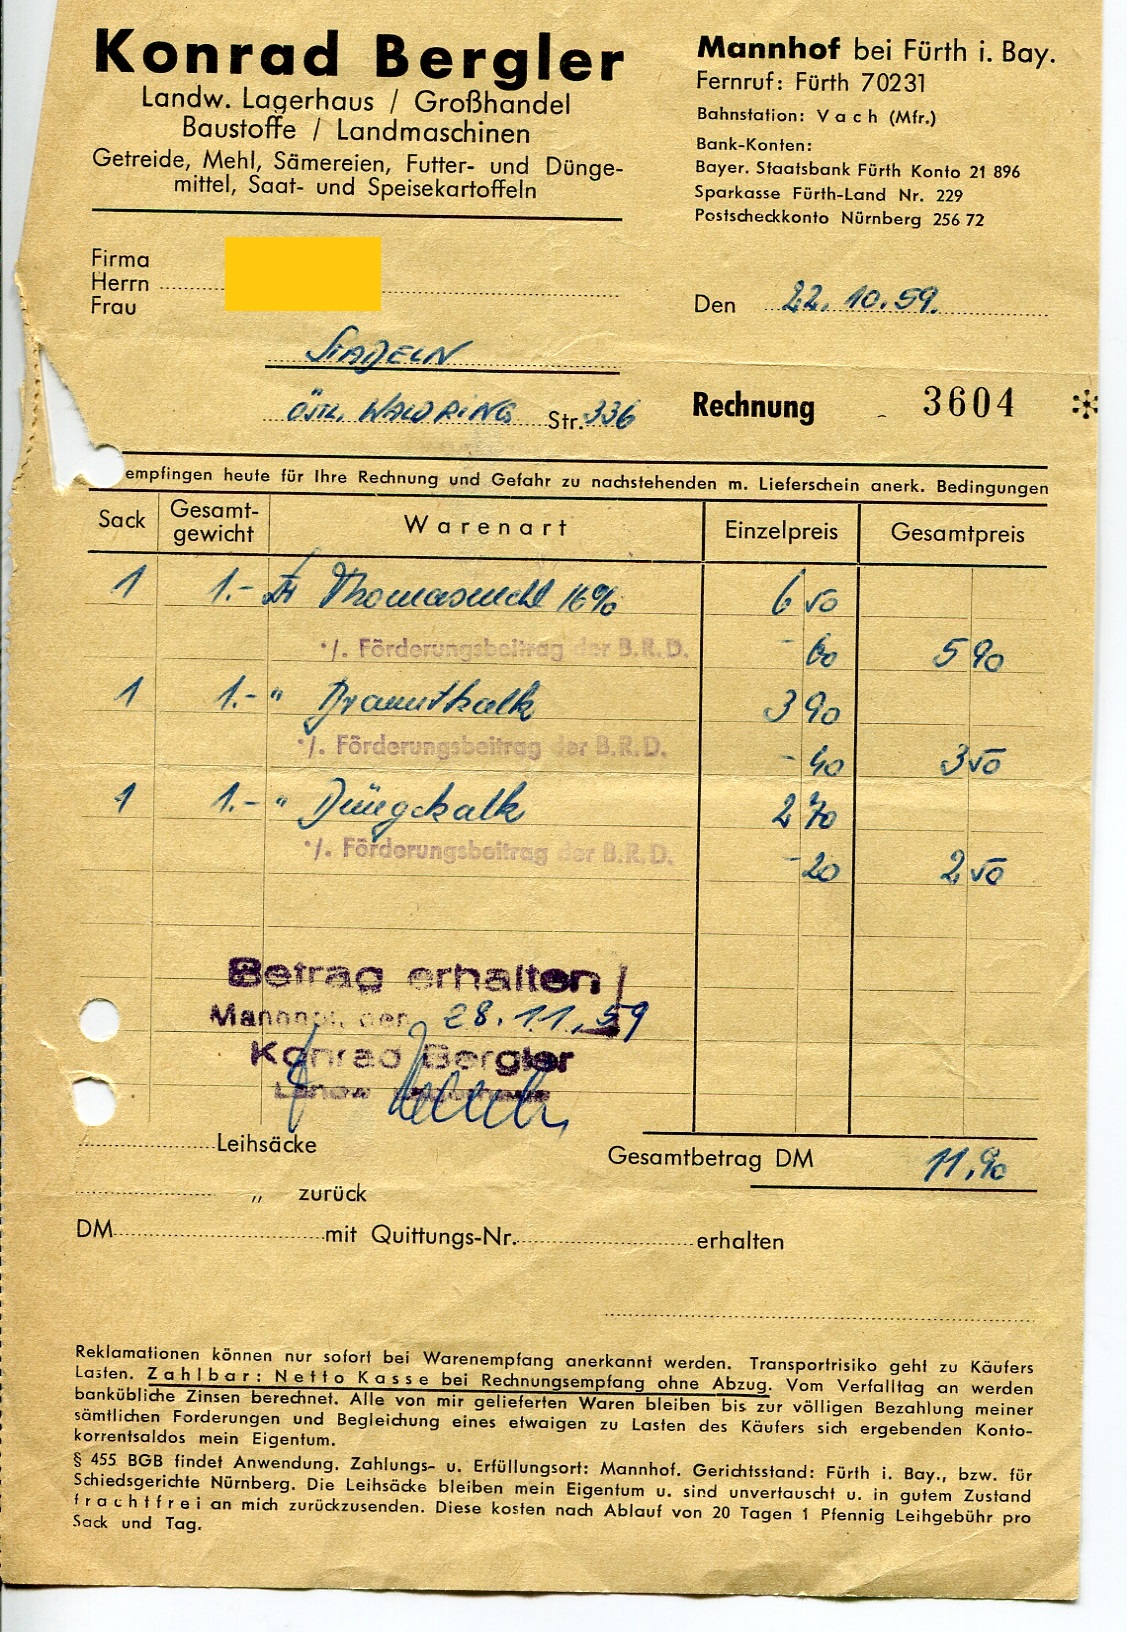 Konrad Bergler
Landw. Lagerhaus / Großhandel
Baustoffe / Landmaschinen
Getreide, Mehl, Sämereien, Futter- und Dünge-
mittel, Saat- und Speisekartoffeln
Mannhof bei Fürth i. Bay.
Fernruf: Fürth 70231
Bahnstation: Vach (Mfr.)
Bank-Konten:
Bayer. Staatsbank Fürth Konto 21 896
Sparkasse Fürth-Land Nr. 229
Postscheckkonto Nürnberg 256 72
Firma
Herrn
Frau
Den 22.10.59.
STADELN
ÖSTL. WALDRING Str. 336
Rechnung 3604 *
empfingen heute für Ihre Rechnung und Gefahr zu nachstehenden m. Lieferschein anerk. Bedingungen
Sack Gesamt-gewicht Warenart Einzelpreis Gesamtpreis
1 1.- Thomasmehl 16% 6 50
·/. Förderungsbeitrag der B.R.D. - 60 5 90
1 1.- " Branntkalk 3 90
·/. Förderungsbeitrag der B.R.D. - 40 3 50
1 1.- " Düngekalk 2 70
·/. Förderungsbeitrag der B.R.D. - 20 2 50
Betrag erhalten!
Mannhof, den 28.11.59
Konrad Bergler
Landw.
Leihsäcke
Gesamtbetrag DM 11,90
„ zurück
DM mit Quittungs-Nr. erhalten
Reklamationen können nur sofort bei Warenempfang anerkannt werden. Transportrisiko geht zu Käufers
Lasten. Zahlbar: Netto Kasse bei Rechnungsempfang ohne Abzug. Vom Verfalltag an werden
bankübliche Zinsen berechnet. Alle von mir gelieferten Waren bleiben bis zur völligen Bezahlung meiner
sämtlichen Forderungen und Begleichung eines etwaigen zu Lasten des Käufers sich ergebenden Konto-
korrentsaldos mein Eigentum.
§ 455 BGB findet Anwendung. Zahlungs- u. Erfüllungsort: Mannhof. Gerichtsstand: Fürth i. Bay., bzw. für
Schiedsgerichte Nürnberg. Die Leihsäcke bleiben mein Eigentum u. sind unvertauscht u. in gutem Zustand
frachtfrei an mich zurückzusenden. Diese kosten nach Ablauf von 20 Tagen 1 Pfennig Leihgebühr pro
Sack und Tag.